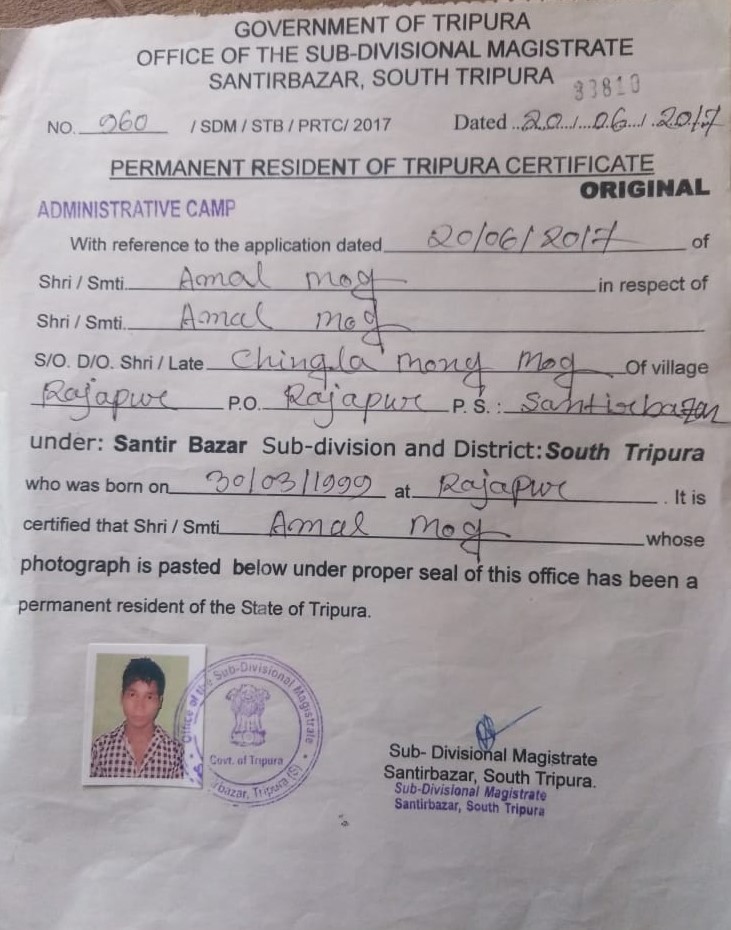 GOVERNMENT OF TRIPURA
OFFICE OF THE SUB-DIVISIONAL MAGISTRATE
SANTIRBAZAR, SOUTH TRIPURA
33810
NO. 960 / SDM / STB / PRTC/ 2017 Dated ..20.../...06.../.2017
PERMANENT RESIDENT OF TRIPURA CERTIFICATE
ORIGINAL
ADMINISTRATIVE CAMP
With reference to the application dated 20/06/2017 of
Shri / Smti. Amal mog in respect of
Shri / Smti. Amal mog
S/O. D/O. Shri / Late Chingla mong mog Of village
Rajapur P.O. Rajapur P. S. : Santirbazar
under: Santir Bazar Sub-division and District: South Tripura
who was born on 30/03/1999 at Rajapur . It is
certified that Shri / Smti Amal mog whose
photograph is pasted below under proper seal of this office has been a
permanent resident of the State of Tripura.
Office of the Sub-Divisional Magistrate
Govt. of Tripura
rbazar, Tripura (S)
Sub- Divisional Magistrate
Santirbazar, South Tripura.
Sub-Divisional Magistrate
Santirbazar, South Tripura